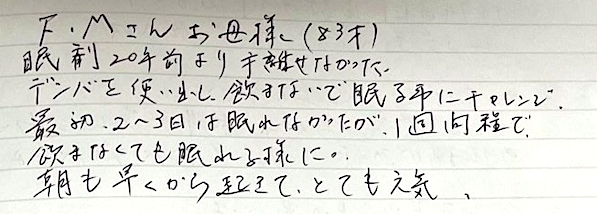 F・Mさん お母様 (83才)
眠剤 20年前より手離せなかった
デンバを使い出し、飲まないで眠る事にチャレンジ.
最初、2〜3日は眠れなかったが、1週間程で
飲まなくても眠れる様に。
朝も早くから起きて、とても元気、